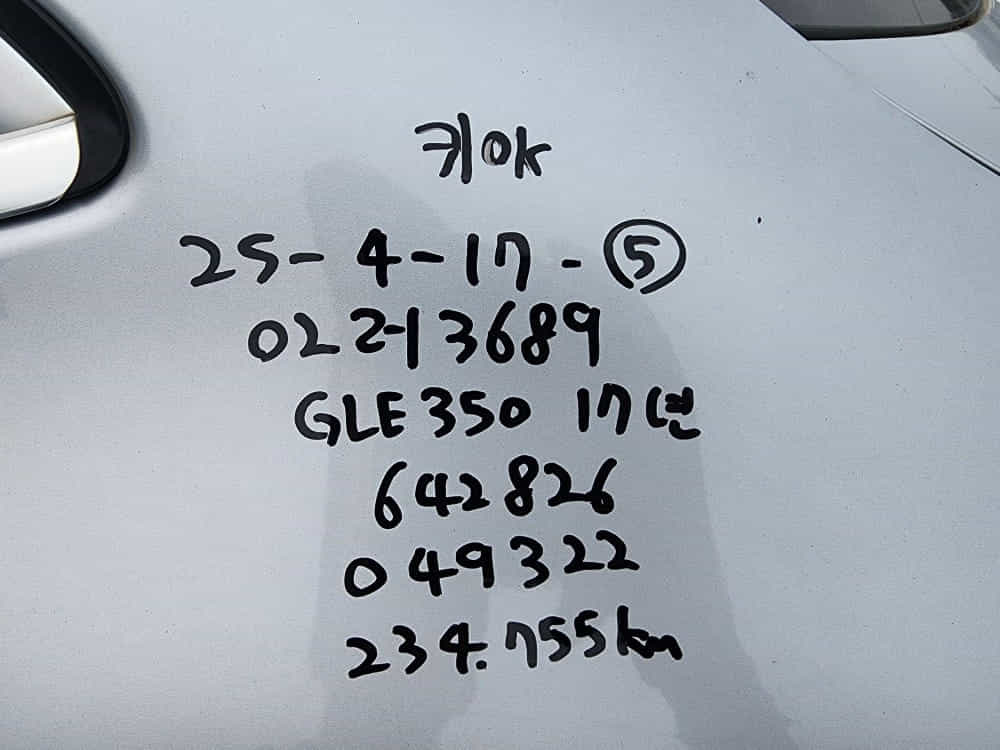 키OK
25-4-17-⑤
022-13689
GLE350 17년
642826
049322
234.755km